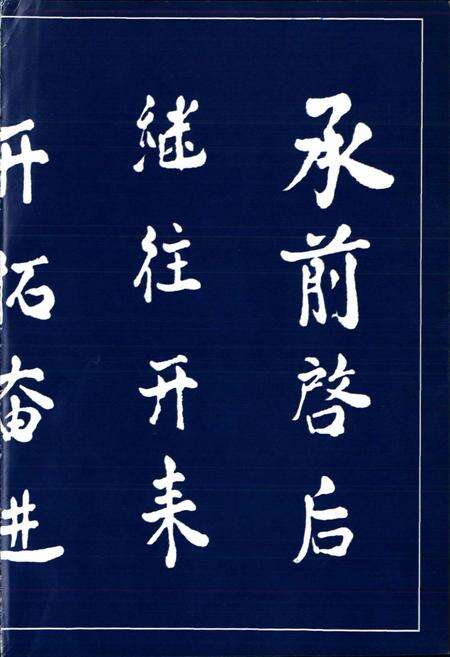 承前启后
继往开来
开拓奋进